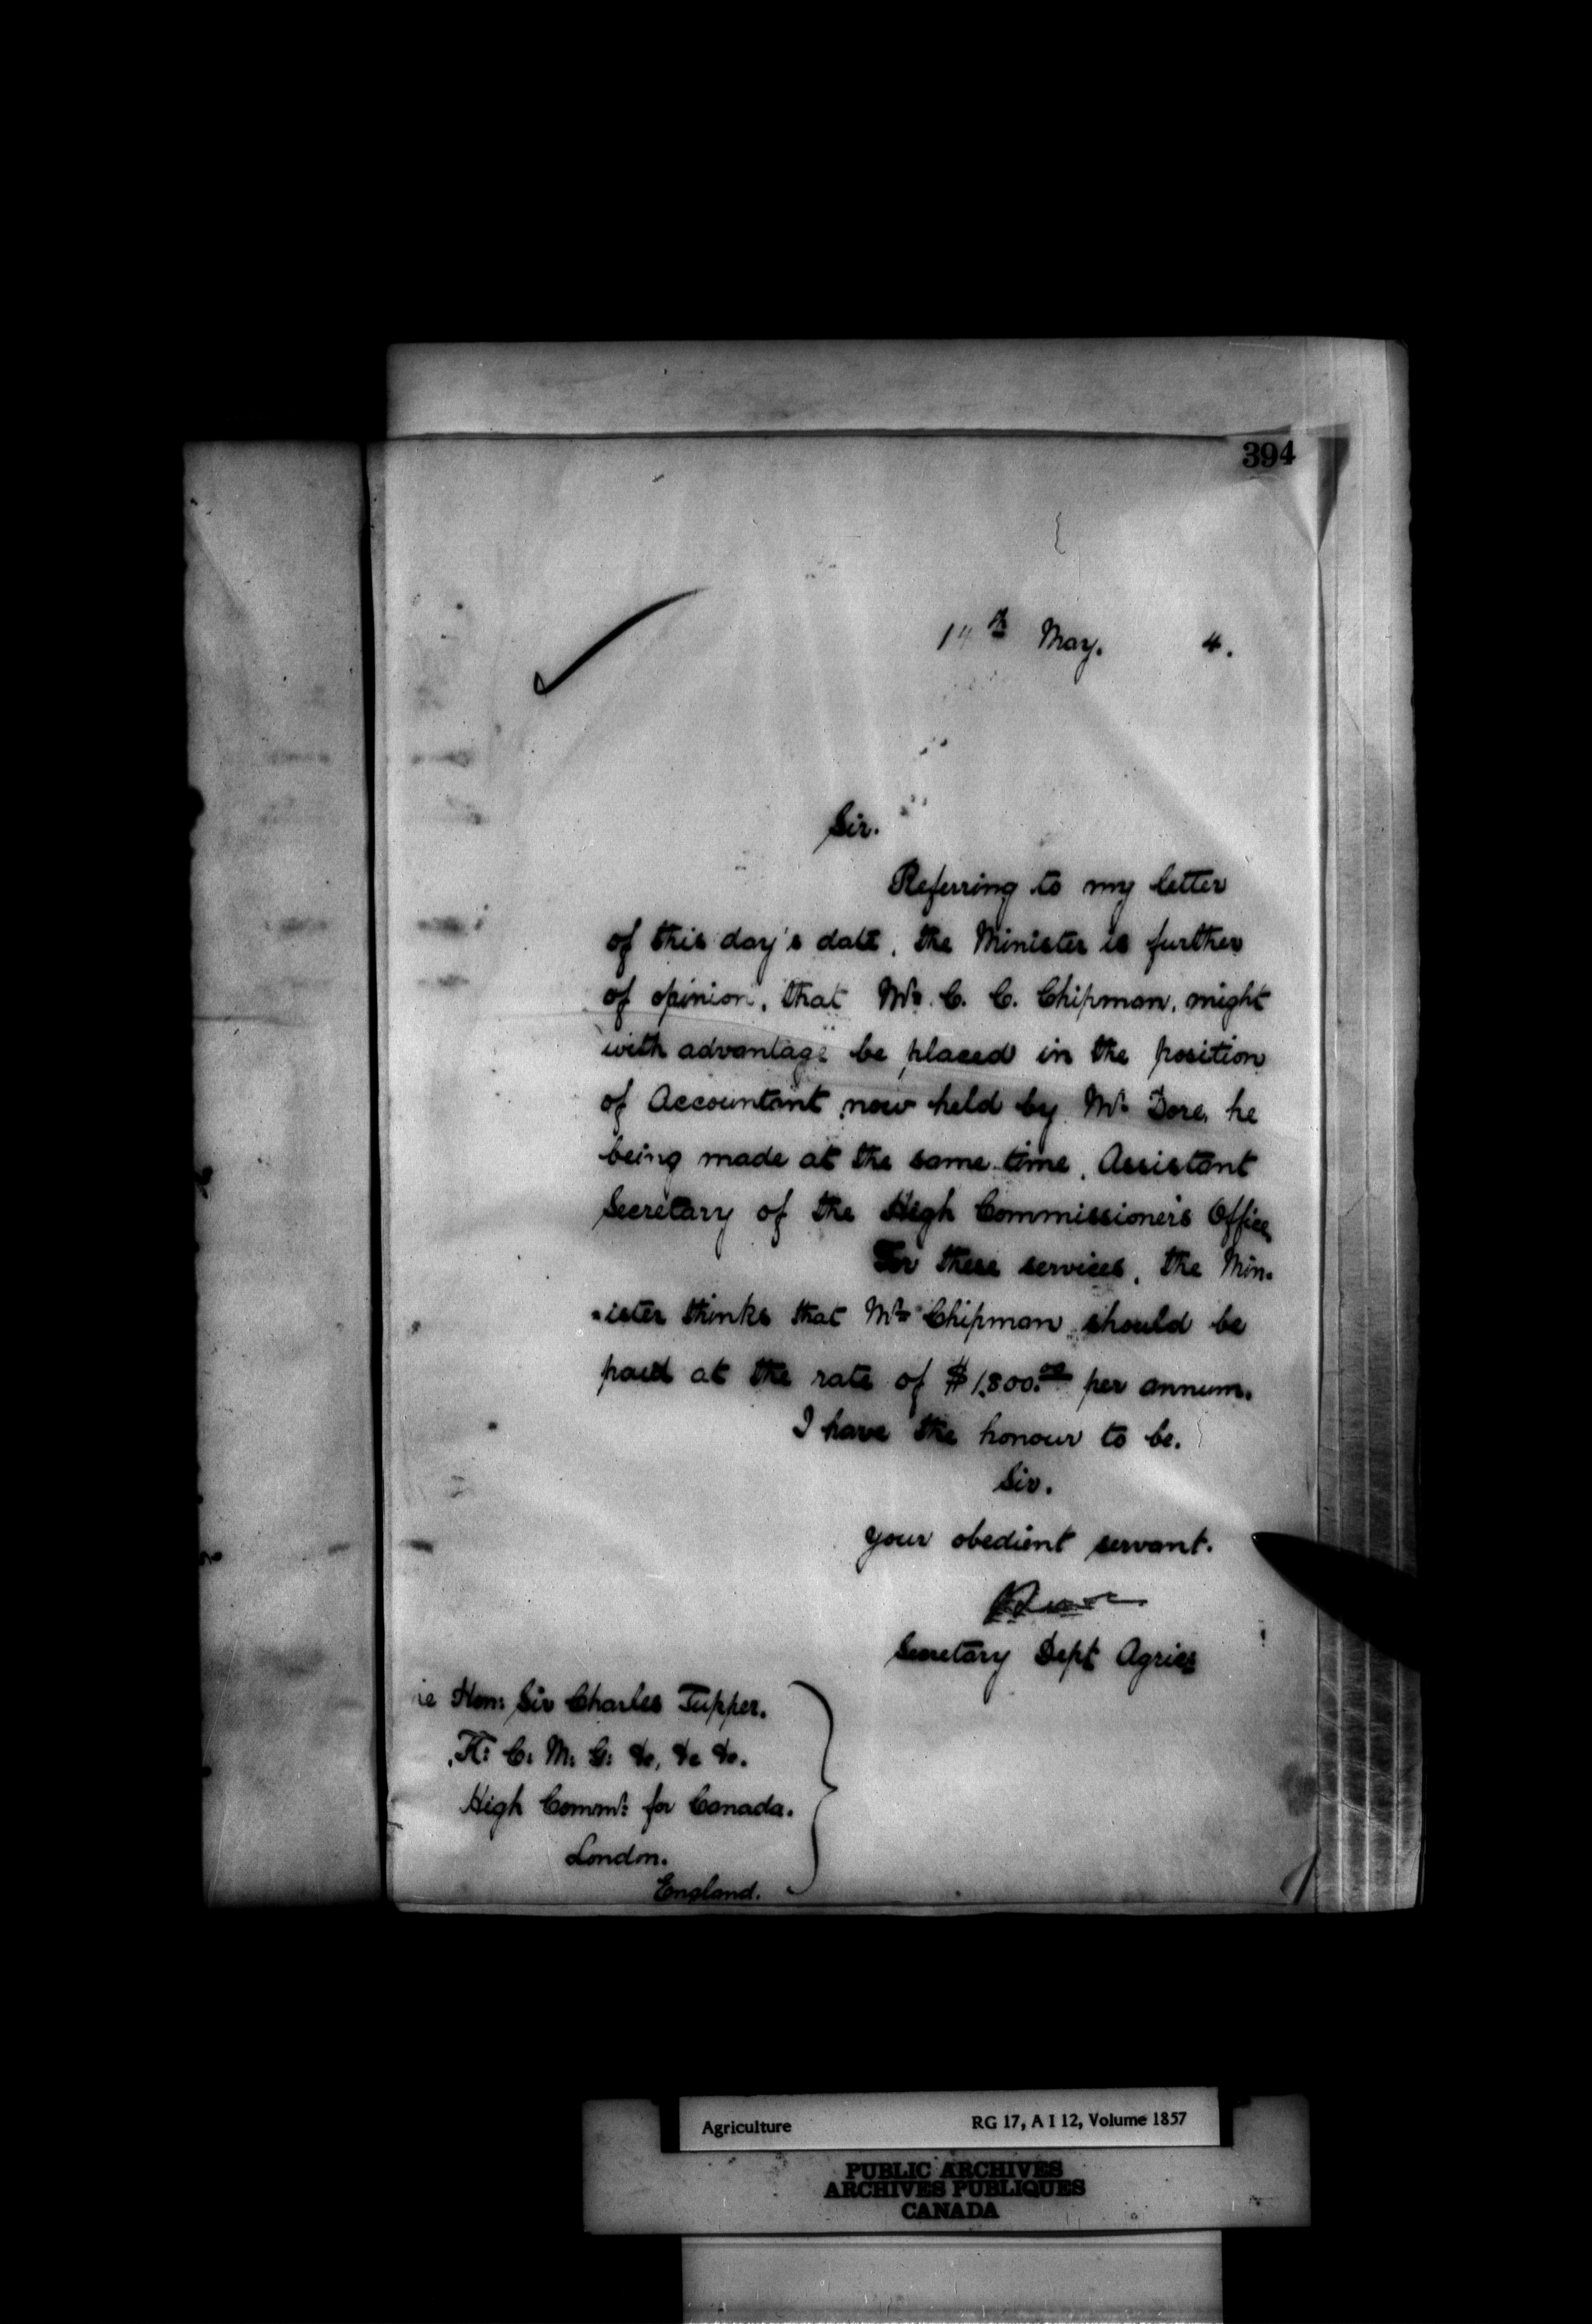 394
14th May. 4.
Sir.
Referring to my letter
of this day's date, the Minister is further
of opinion, that Mr. C. C. Chipman, might
with advantage be placed in the position
of Accountant now held by Mr Dore, he
being made at the same time, Assistant
Secretary of the High Commissioner's Office,
For these services, the Min-
-ister thinks that Mr Chipman should be
paid at the rate of $1,800.00 per annum.
I have the honour to be.
Sir.
your obedient servant.
Secretary Dept Agric
Hon: Sir Charles Tupper.
K: C: M: G: &c, &c &c.
High Commr: for Canada.
London.
England.
Agriculture RG 17, A I 12, Volume 1857
PUBLIC ARCHIVES
ARCHIVES PUBLIQUES
CANADA